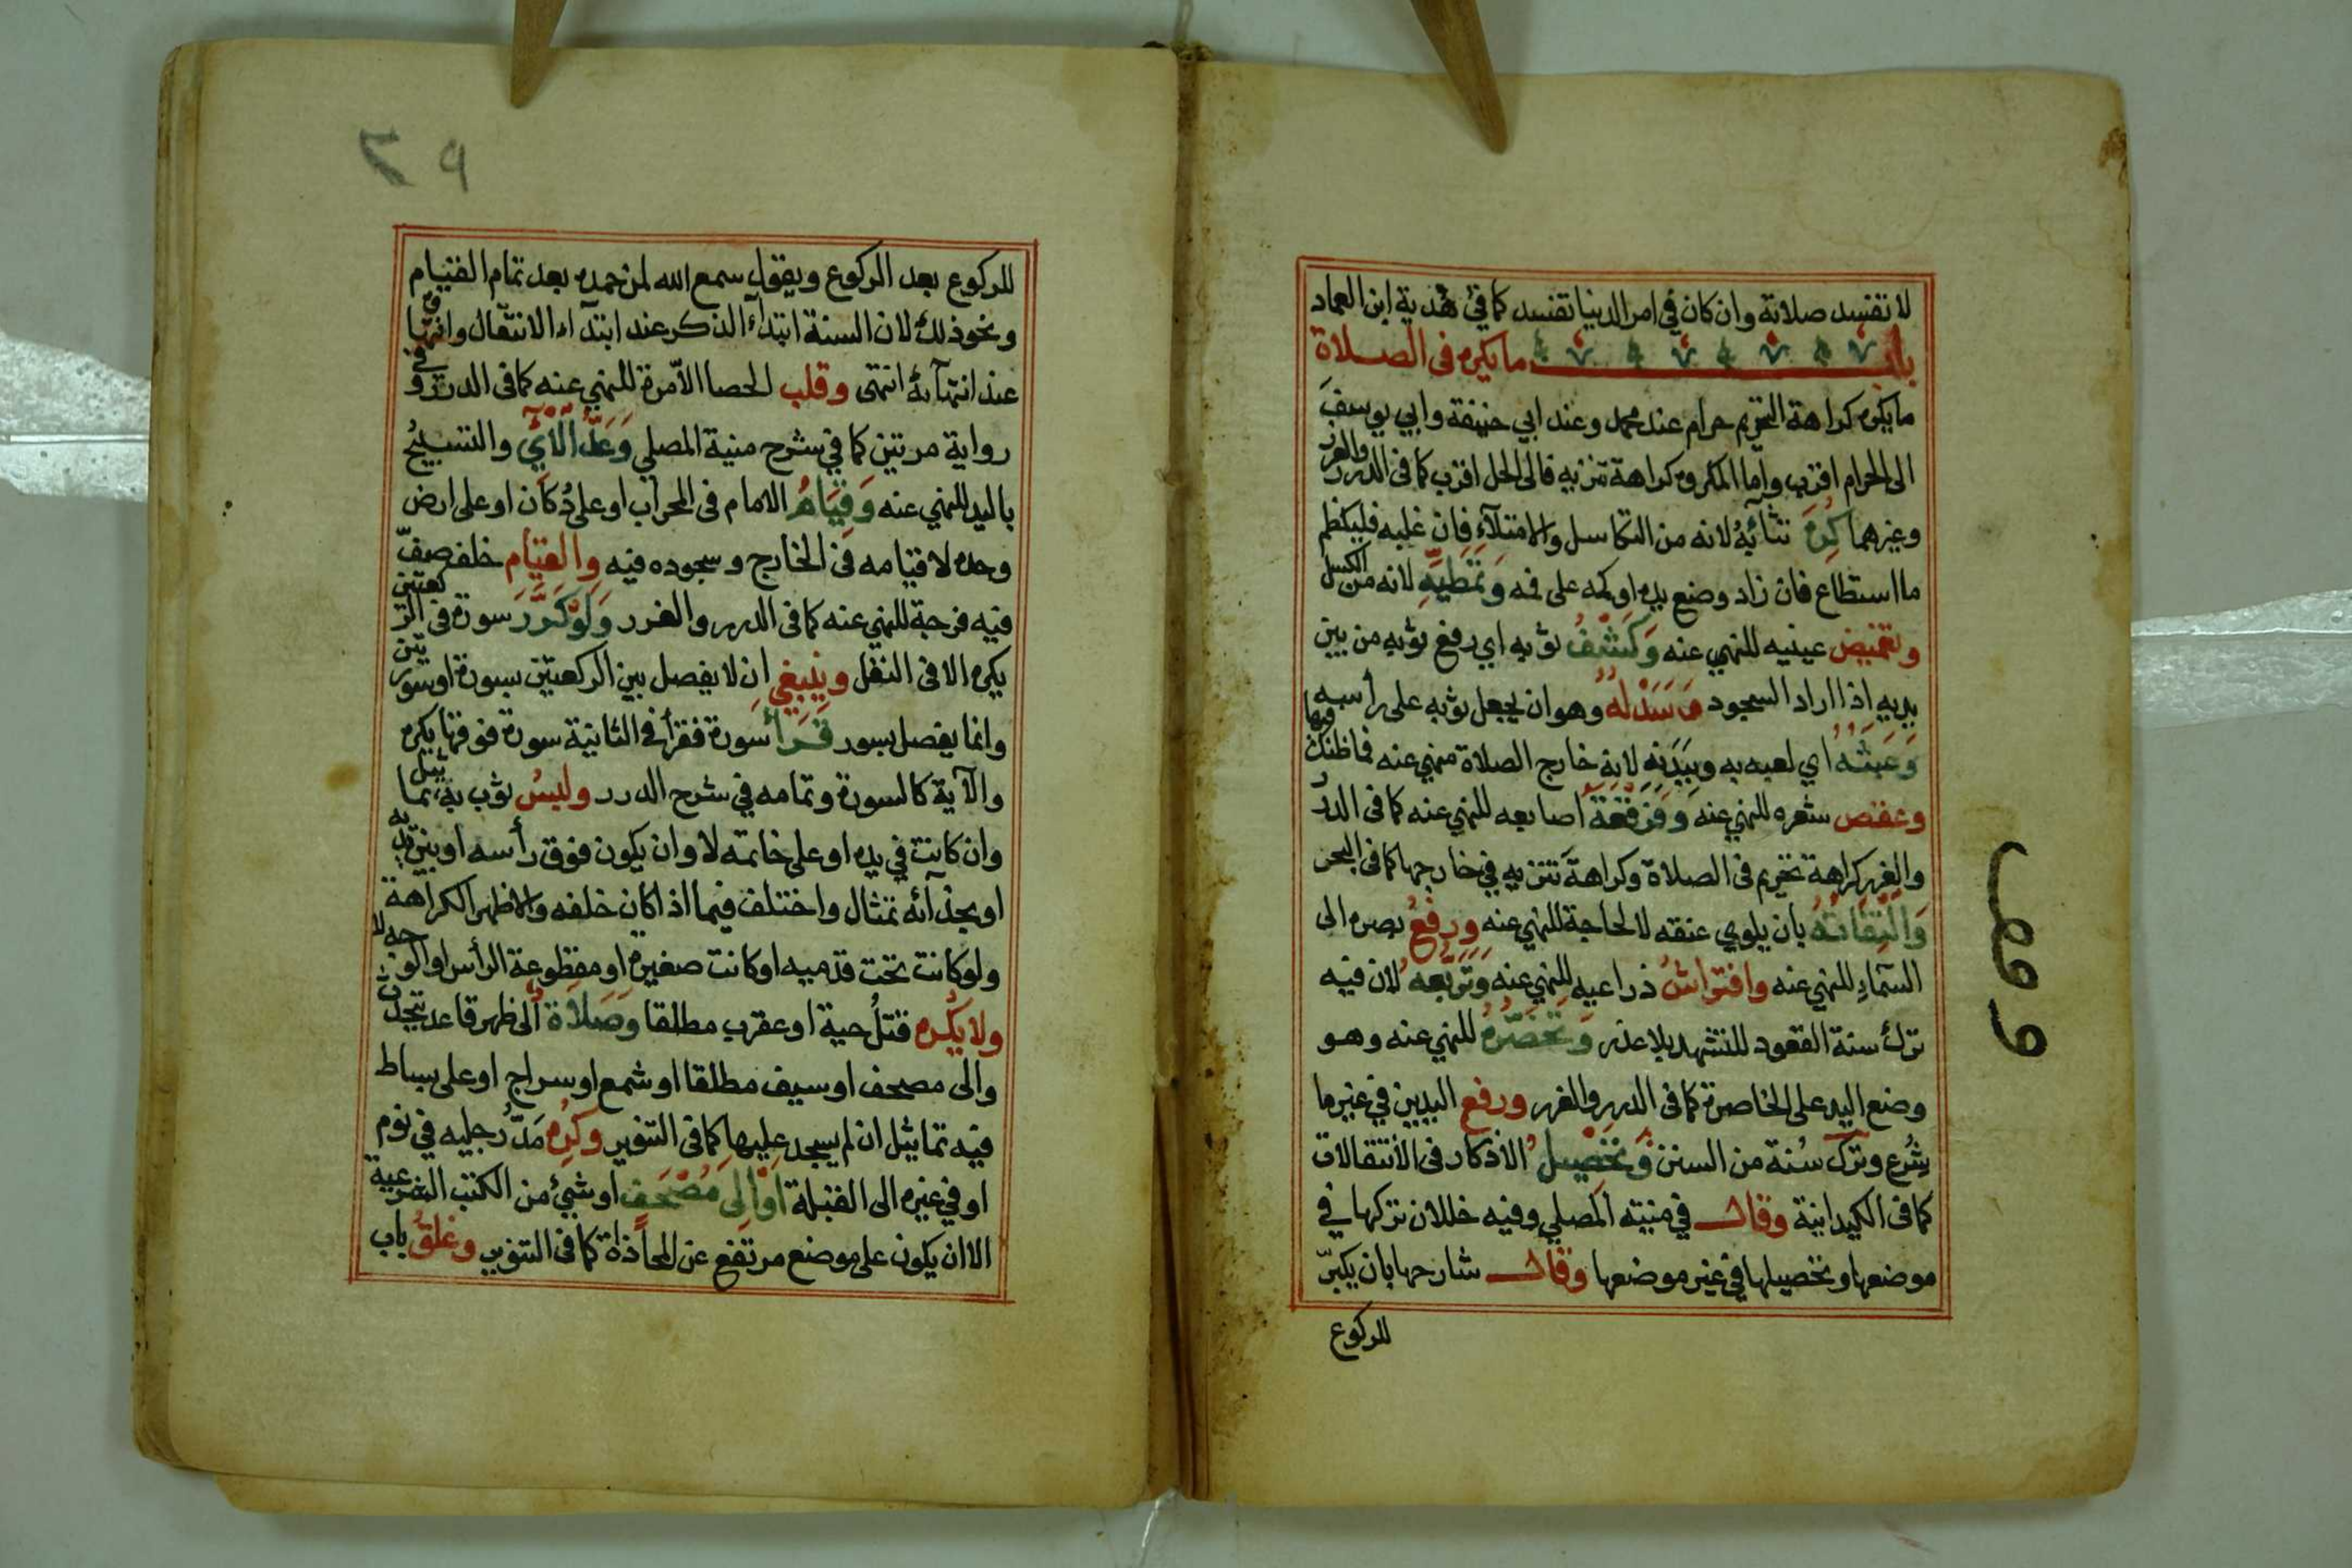 لا تفسد صلاته وان كان في امر الدنيا تفسد كما في هدية ابن العماد
باب ما يكره في الصلاة
ما يكره كراهة التحريم حرام عند محمد وعند ابي حنيفة وابي يوسف
الى الحرام اقرب واما المكروه كراهة تنزيه فالى الحل اقرب كما في الدرر والغرر
وغيرهما كره تثائبه لانه من التكاسل والامتلاء فان غلبه فليكظم
ما استطاع فان زاد وضع يده او كمه على فمه وتمطيه لانه من الكسل
وتغميض عينيه للنهي عنه وكشف ثوبه اي رفع ثوبه من بين
يديه اذا اراد السجود وسدله وهو ان يجعل ثوبه على رأسه
وعبثه اي لعبه به وببدنه لانه خارج الصلاة منهي عنه فما ظنك فيها
وعقص شعره للنهي عنه وفرقعة اصابعه للنهي عنه كما في الدرر
والغرر كراهة تحريم في الصلاة وكراهة تنزيه في خارجها كما في البحر
والتفاته بان يلوي عنقه لا لحاجة للنهي عنه ورفع بصره الى
السماء للنهي عنه وافتراش ذراعيه للنهي عنه وتربعه لان فيه
ترك سنة القعود للتشهد بلا عذر وتخصره للنهي عنه وهو
وضع اليد على الخاصرة كما في الدرر والغرر ورفع اليدين في غير ما
شرع وترك سنة من السنن وتحصيل الاذكار في الانتقالات
كما في الكيدانية وقال في منية المصلي وفيه خللان تركها في
موضعها وتحصيلها في غير موضعها وقال شارحها بان يكبر
للركوع
وقف
٢٩
للركوع بعد الركوع ويقول سمع الله لمن حمده بعد تمام القيام
ونحو ذلك لان السنة ابتداء الذكر عند ابتداء الانتقال وانتهاؤه
عند انتهائه انتهى وقلب الحصا الا مرة للنهي عنه كما في الدرر وفي
رواية مرتين كما في شرح منية المصلي وعد الآي والتسبيح
باليد للنهي عنه وقيام الامام في المحراب او على دكان او على ارض
وحده لا قيامه في الخارج وسجوده فيه والقيام خلف صف
فيه فرجة للنهي عنه كما في الدرر والغرر ولو كرر سورة في الركعتين
يكره الا في النفل وينبغي ان لا يفصل بين الركعتين بسورة او سورتين
وانما يفصل بسور قرأ سورة فقرأ في الثانية سورة فوقها يكره
والآية كالسورة وتمامه في شرح الدرر ولبس ثوب به تماثيل
وان كانت في يده او على خاتمه لا وان يكون فوق رأسه او بين يديه
او بحذائه تمثال واختلف فيما اذا كان خلفه والاظهر الكراهة
ولو كانت تحت قدميه او كانت صغيرة او مقطوعة الرأس او الوجه لا
ولا يكره قتل حية او عقرب مطلقا وصلاة الى ظهر قاعد يتحدث
والى مصحف او سيف مطلقا او شمع او سراج او على بساط
فيه تماثيل ان لم يسجد عليها كما في التنوير وكره مد رجليه في نوم
او في غيره الى القبلة او الى مصحف او شيء من الكتب الشرعية
الا ان يكون على موضع مرتفع عن المحاذاة كما في التنوير وغلق باب